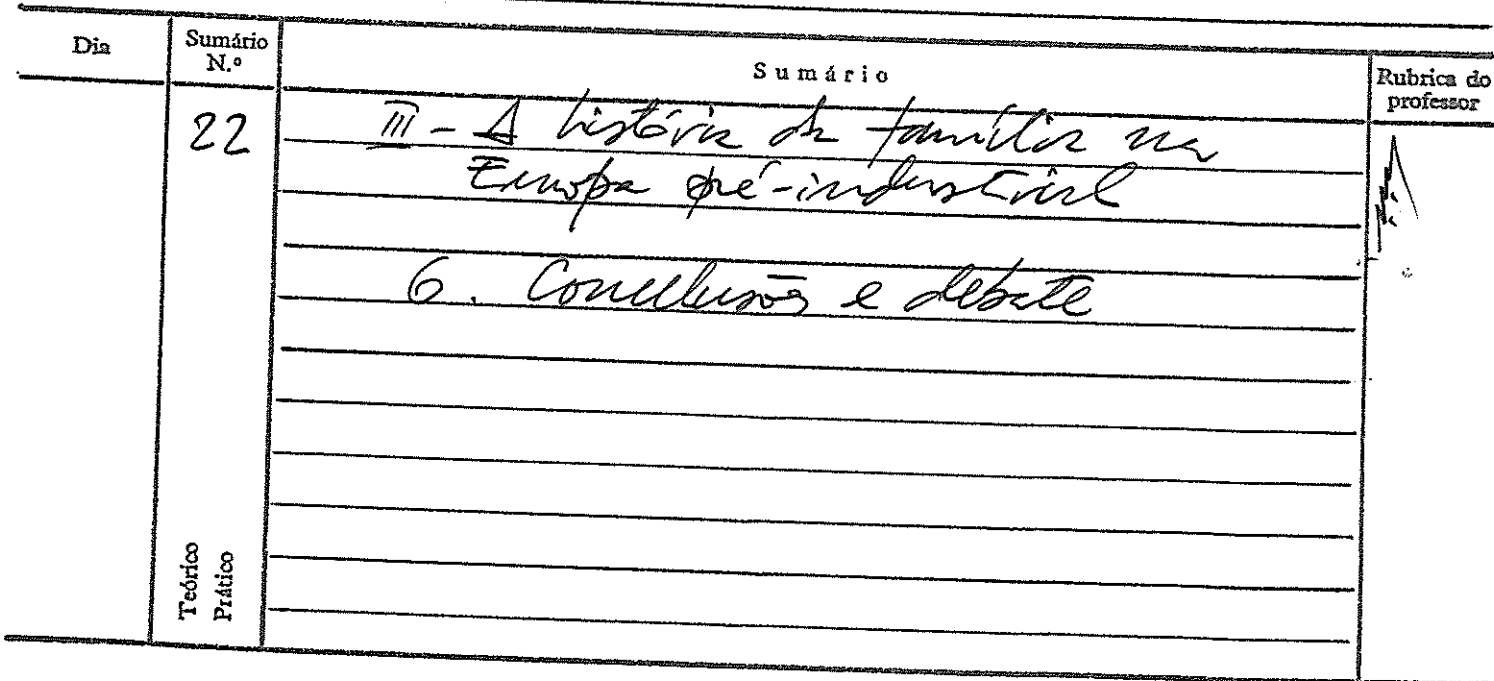 Dia
Sumário
N.º
Sumário
Rubrica do
professor
22
III - A história da família na
Europa pré-industrial
6. Conclusões e debate
Teórico
Prático